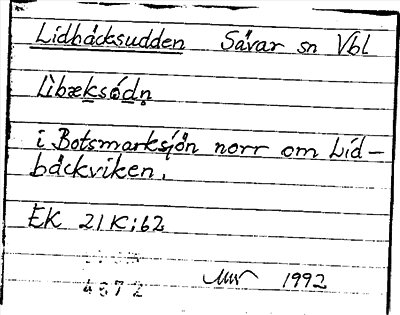 Lidbäcksudden Sävar sn Vbl
i Botsmarksjön norr om Lid-
bäckviken.
EK 21K:62
4672
1992